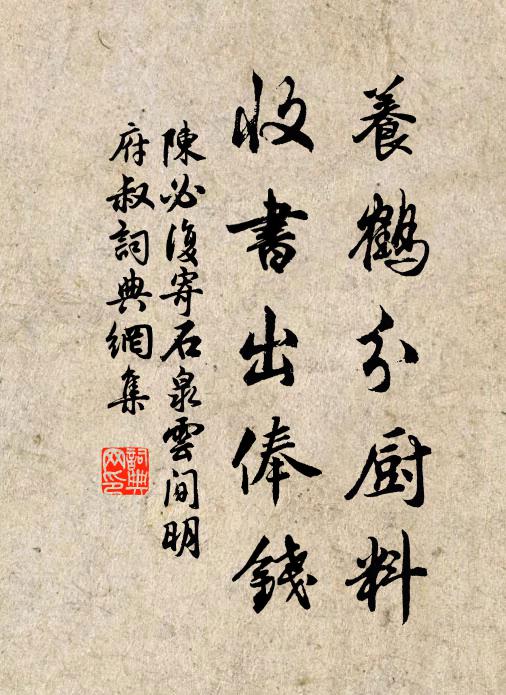 養鶴分厨料
收書出俸錢
陳必復寄石泉雲間明
府叔詞典網集
詞典
网印